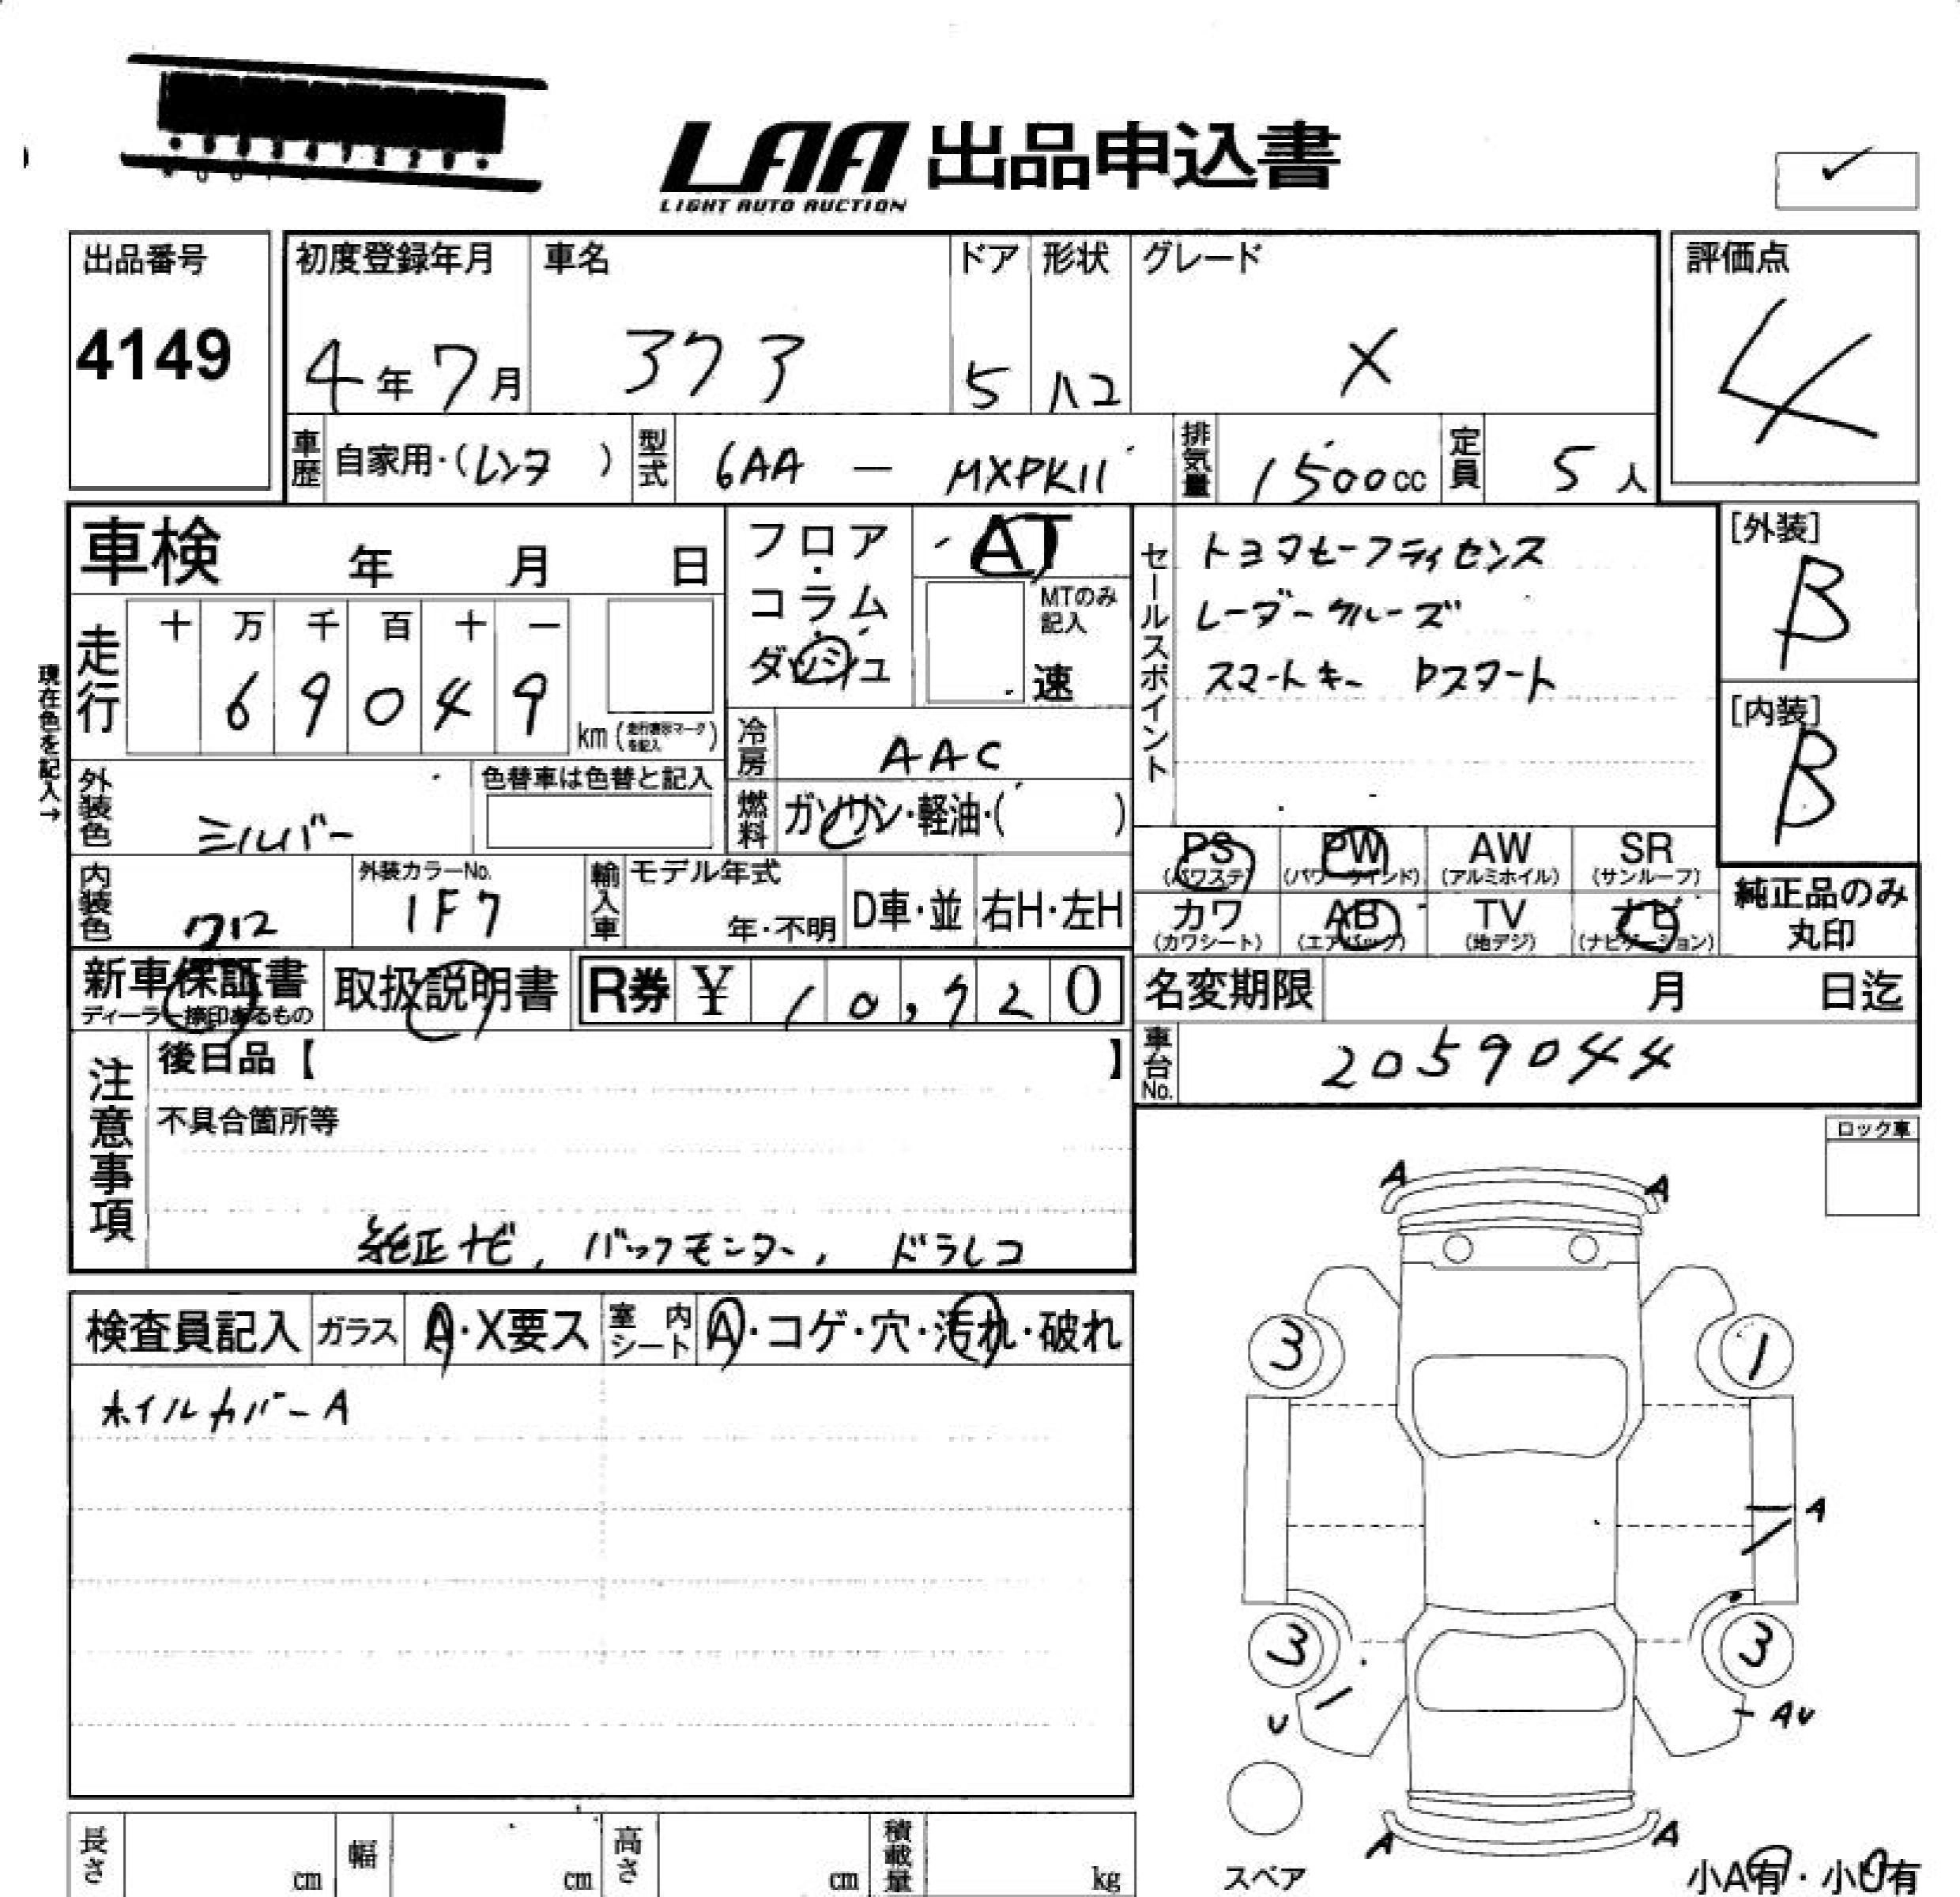 LAA 出品申込書
LIGHT AUTO AUCTION
出品番号 初度登録年月 車名 ドア 形状 グレード 評価点
4149 4年7月 アクア 5 ハコ X 4
車歴 自家用・(レンタ) 型式 6AA — MXPK11 排気量 1500cc 定員 5人
車検 年 月 日
フロア・コラム・ダッシュ
AT
MTのみ記入
速
セールスポイント
トヨタセーフティセンス
レーダークルーズ
スマートキー Pスタート
[外装]
B
[内装]
B
現在色を記入→
走行 十 万 千 百 十 一
6 9 0 4 9
km (走行表示マークを記入)
冷房 AAC
燃料 ガソリン・軽油・( )
外装色 シルバー
色替車は色替と記入
内装色 クロ
外装カラーNo.
1F7
輸入車 モデル年式
年・不明 D車・並 右H・左H
PS AW SR
PW
(パワステ) (パワーウインド) (アルミホイル) (サンルーフ)
カワ AB TV ナビ
(カワシート) (エアバック) (地デジ) (ナビゲーション)
純正品のみ
丸印
新車保証書 取扱説明書 R券 ¥ 10,720
ディーラー捺印あるもの
名変期限 月 日迄
車台No. 2059044
注意事項
後日品【 】
不具合箇所等
純正ナビ, バックモニター, ドラレコ
ロック車
検査員記入 ガラス A・X要ス 室内シート A・コゲ・穴・汚れ・破れ
ホイルカバーA
A A
3 1
A
3 3
U AU
A A
スペア
小A有・小U有
長さ cm 幅 cm 高さ cm 積載量 kg